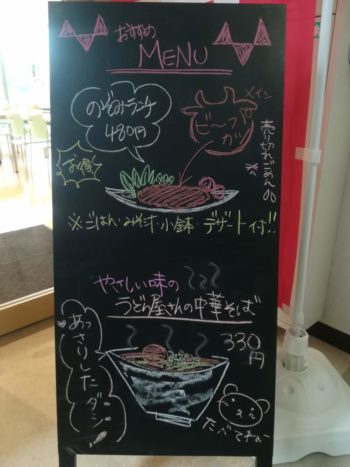 おすすめ
MENU
のぞみランチ
480円
メイン
ビーフカツ
売り切れごめん
お得
※ごはん・みそ汁・小鉢・デザート付!!
やさしい味の
うどん屋さんの中華そば
330円
あっさりしたダシ
たべてネ